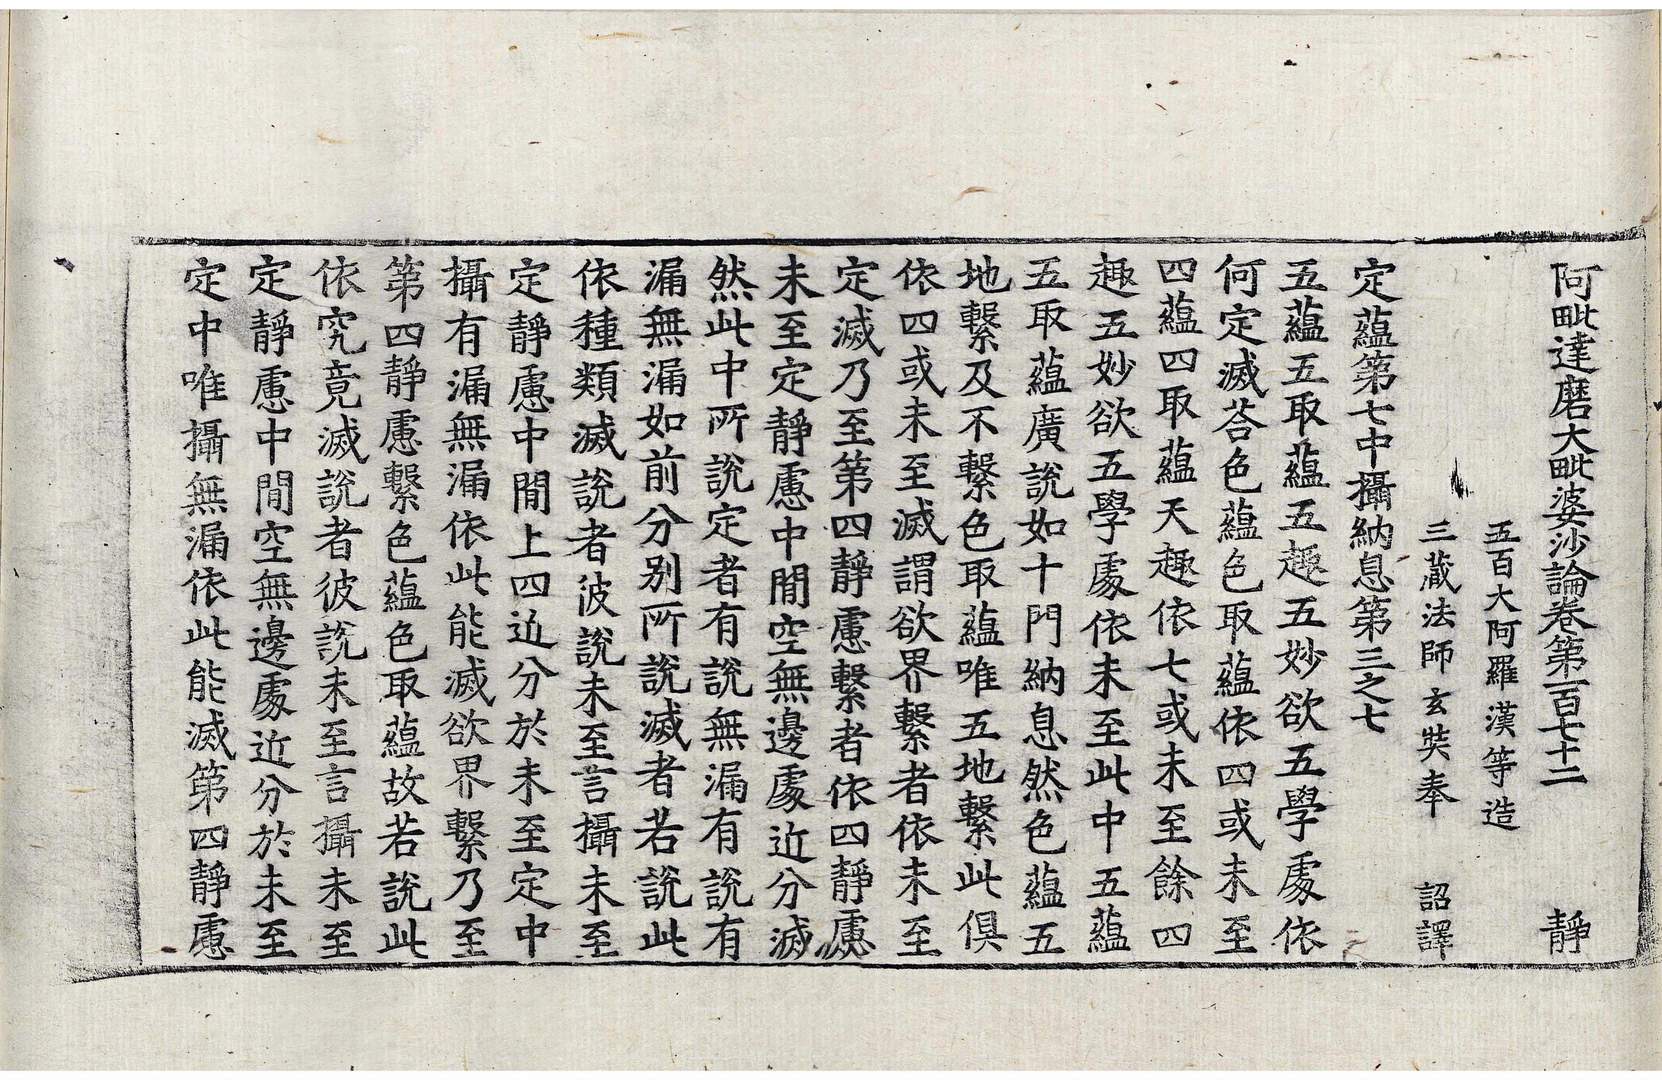 阿毗達磨大毗婆沙論卷第一百七十二　靜
五百大阿羅漢等造
三藏法師玄奘奉　詔譯
定蘊第七中攝納息第三之七
五蘊五取蘊五趣五妙欲五學處依
何定滅荅色蘊色取蘊依四或未至
四蘊四取蘊天趣依七或未至餘四
趣五妙欲五學處依未至此中五蘊
五取蘊廣說如十門納息然色蘊五
地繫及不繫色取蘊唯五地繫此俱
依四或未至滅謂欲界繫者依未至
定滅乃至第四靜慮繫者依四靜慮
未至定靜慮中閒空無邊處近分滅
然此中所說定者有說無漏有說有
漏無漏如前分別所說滅者若說此
依種類滅說者彼說未至言攝未至
定靜慮中閒上四近分於未至定中
攝有漏無漏依此能滅欲界繫乃至
第四靜慮繫色蘊色取蘊故若說此
依究竟滅說者彼說未至言攝未至
定靜慮中閒空無邊處近分於未至
定中唯攝無漏依此能滅第四靜慮